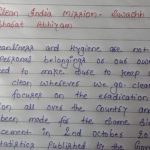 Clean India Mission - Swachh
Bharat Abhiyan
Cleanliness and Hygiene are not
personal belongings as our own
need to make sure to keep
clean wherever we go. clean
focuses on the eradication
on all over the Country an
been made for the same sin
cement in 2nd October 20
statistics Published by the Gov